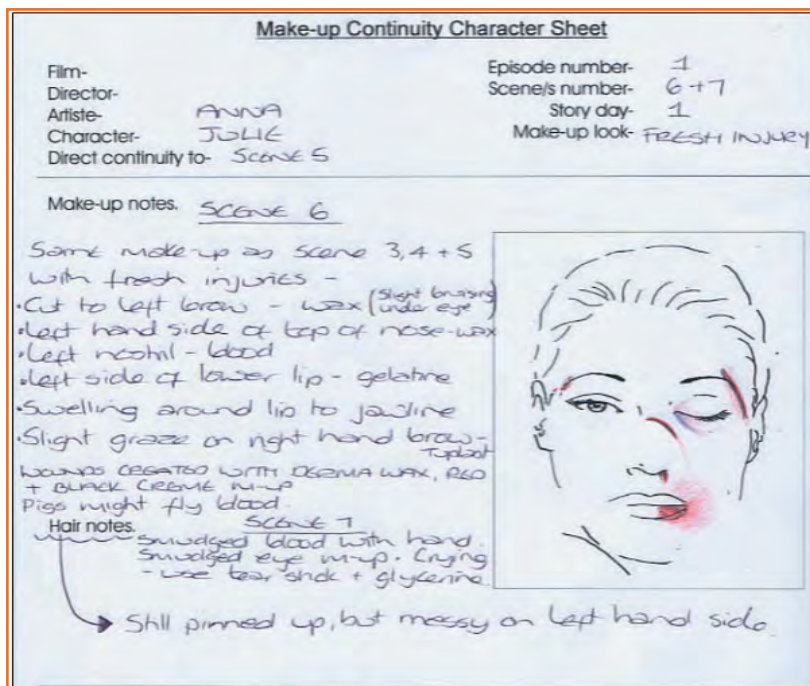 Make-up Continuity Character Sheet
Film-
Director-
Artiste- ANNA
Character- JULIE
Direct continuity to- SCENE 5
Episode number- 1
Scene/s number- 6+7
Story day- 1
Make-up look- FRESH INJURY
Make-up notes. SCENE 6
Same make-up as scene 3,4 + 5
with fresh injuries -
•Cut to left brow - wax (Slight bruising under eye)
•Left hand side of top of nose-wax
•Left nostril - blood
•Left side of lower lip - gelatine
•Swelling around lip to jawline
•Slight graze on right hand brow-
Tuplast
WOUNDS CREATED WITH DERMA WAX, RED
+ BLACK CREME M-UP
Pigs might fly blood.
Hair notes. SCENE 7
Smudged blood with hand.
Smudged eye m-up. Crying
- use tear stick + glycerine
Still pinned up, but messy on left hand side.